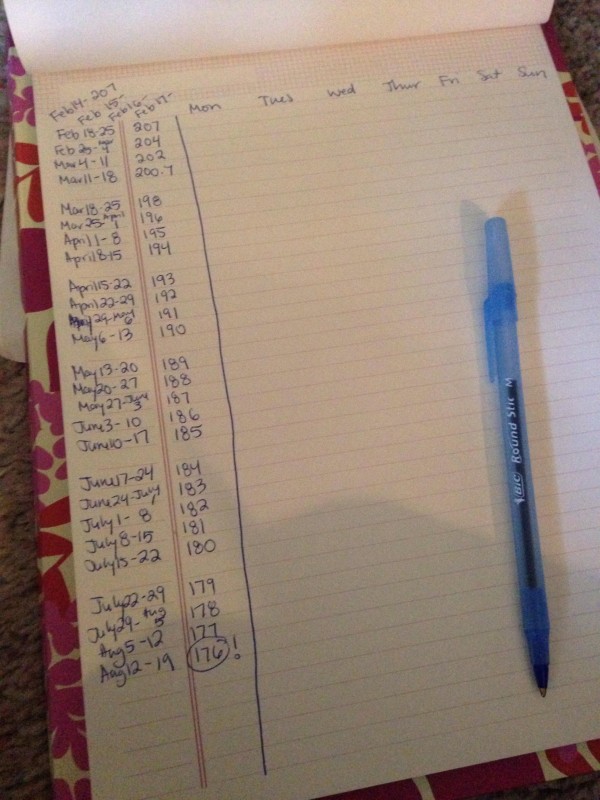 Feb14- 207
Feb 15-
Feb16-
Feb17-
Mon Tues Wed Thur Fri Sat Sun
Feb 18-25 207
Feb 25- Mar 4 204
Mar 4 - 11 202
Mar 11 - 18 200.7
Mar 18-25 198
Mar 25- April 1 196
April 1 - 8 195
April 8-15 194
April 15-22 193
April 22-29 192
April 29-May 6 191
May 6 - 13 190
May 13-20 189
May 20-27 188
May 27-June 3 187
June 3- 10 186
June 10-17 185
June 17-24 184
June 24-July 1 183
July 1- 8 182
July 8-15 181
July 15-22 180
July 22-29 179
July 29- Aug 5 178
Aug 5 -12 177
Aug 12-19 176!
BIC Round Stic M